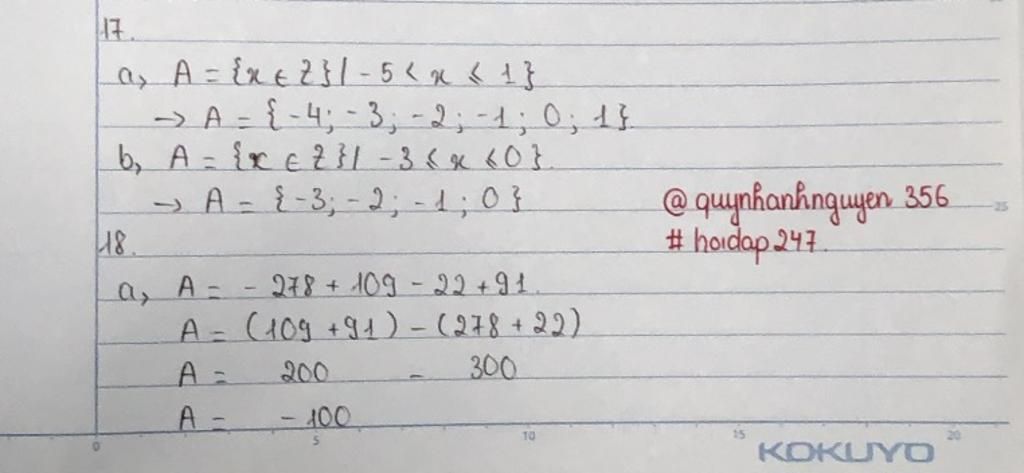 17.
a, A = {x ∈ Z} | -5 < x ⩽ 1}
→ A = {-4; -3; -2; -1; 0; 1}
b, A = {x ∈ Z} | -3 < x ⩽ 0}.
→ A = {-3; -2; -1; 0}
@quynhanhnguyen 356
#hoidap247.
18.
a, A = - 278 + 109 - 22 + 91.
A = (109 + 91) - (278 + 22)
A = 200 - 300
A = -100
25
0 5 10 15 20
KOKUYO